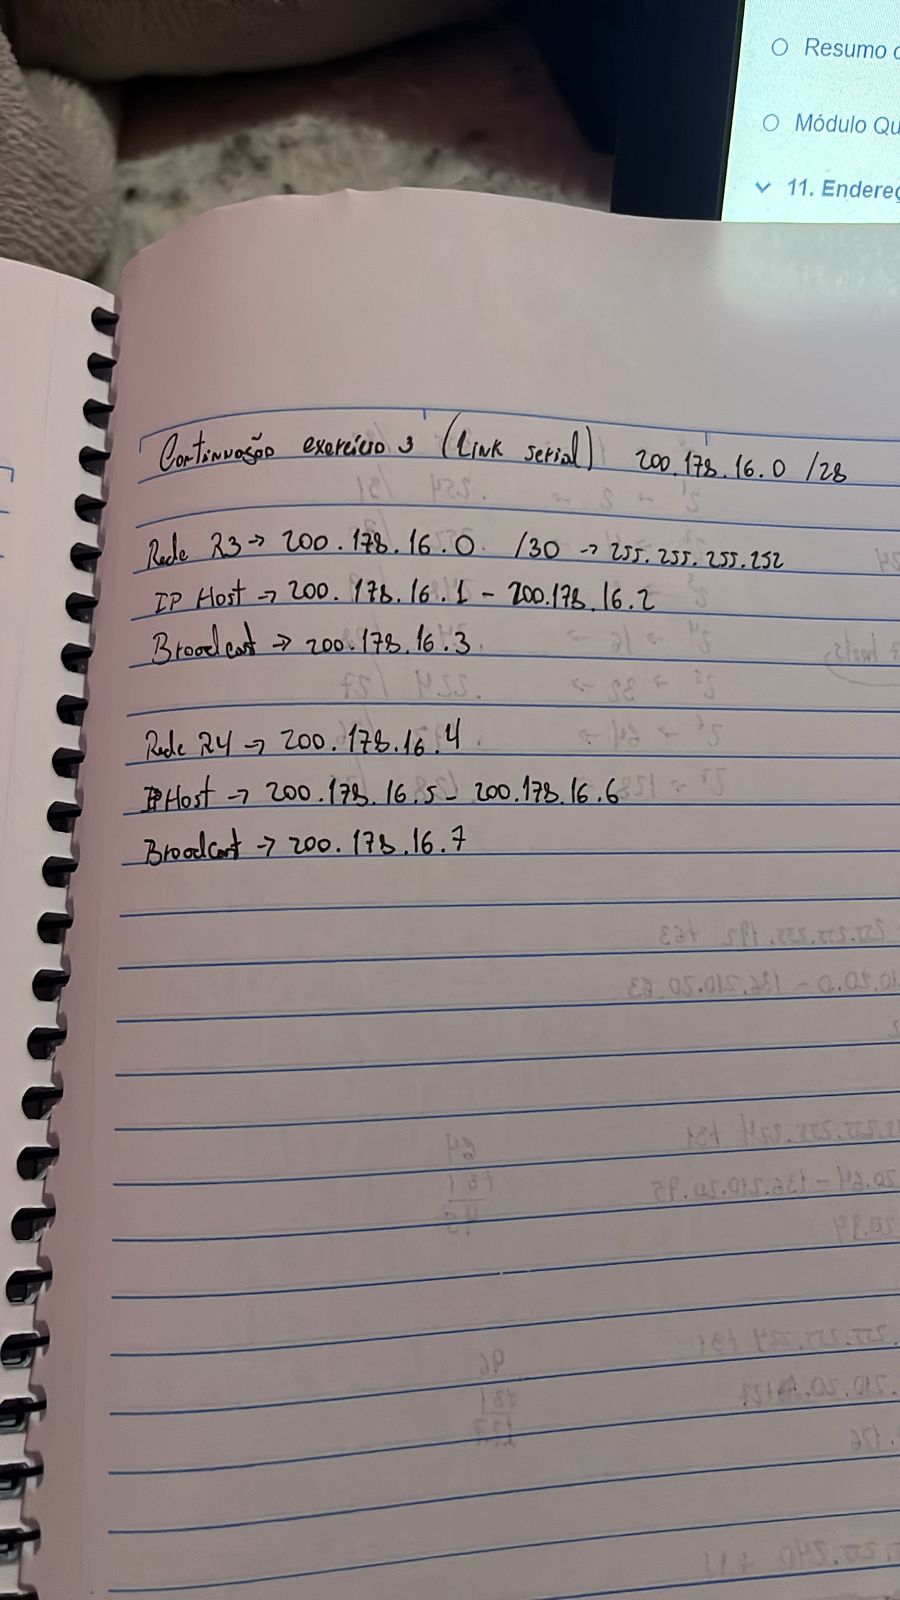 Resumo
Módulo Qu
11. Endereç
Continuação exercício 3 (Link serial) 200.178.16.0 /28
Rede R3 → 200.178.16.0 /30 → 255.255.255.252
IP Host → 200.178.16.1 - 200.178.16.2
Broadcast → 200.178.16.3
Rede R4 → 200.178.16.4
IP Host → 200.178.16.5 - 200.178.16.6
Broadcast → 200.178.16.7